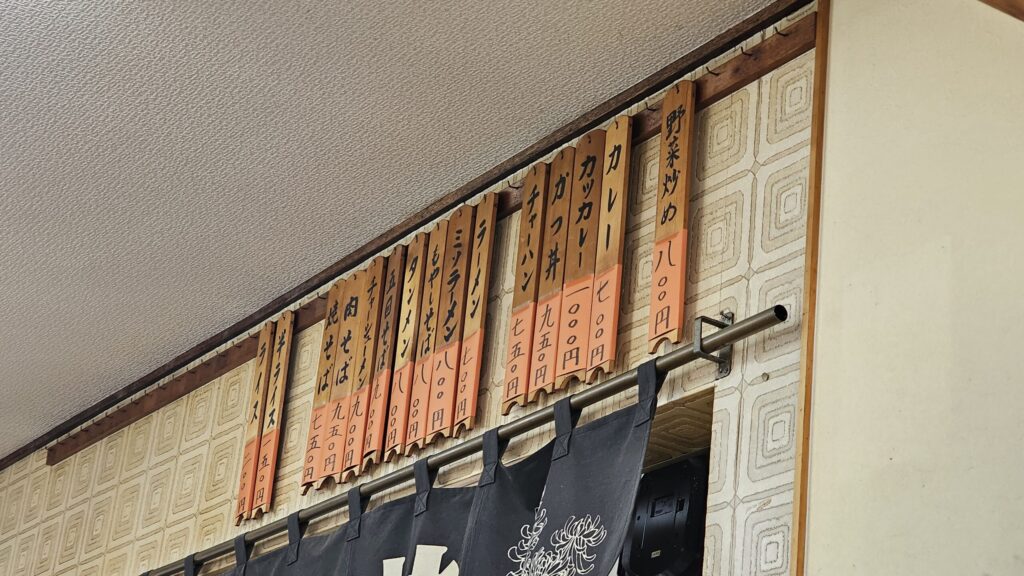 野菜炒め 八〇〇円
カレー 七〇〇円
カツカレー 一、〇〇〇円
かつ丼 九五〇円
チャーハン 七五〇円
ラーメン 七〇〇円
ミソラーメン 八〇〇円
もやしそば 八〇〇円
タンメン 八〇〇円
五目そば 九〇〇円
チャーシューメン 九〇〇円
肉そば 九五〇円
焼そば 七五〇円
半ライス 一五〇円
ライス